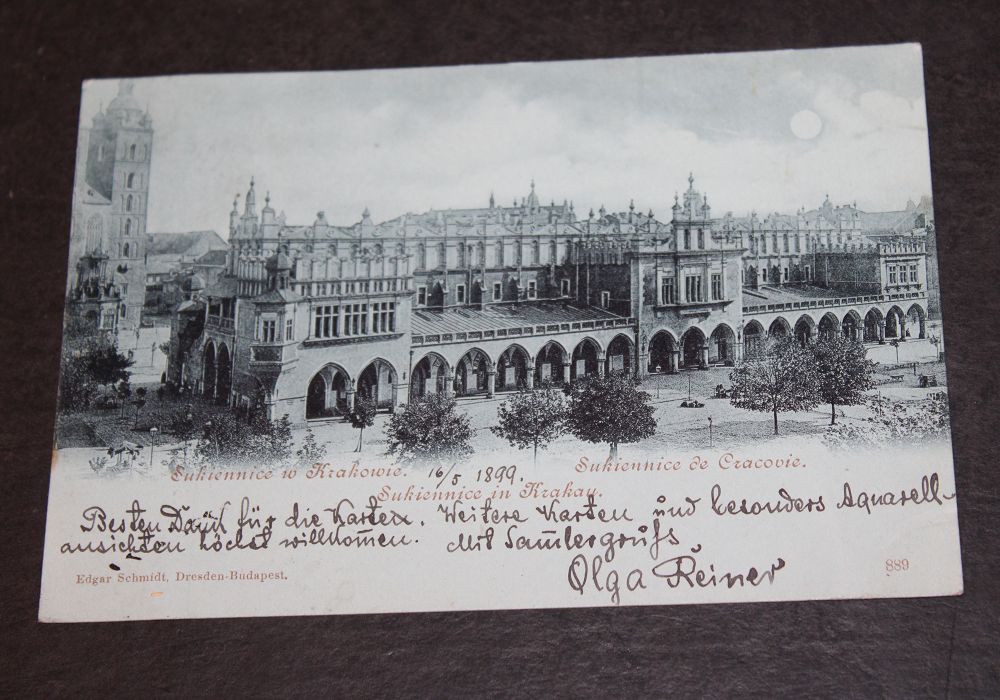 Sukiennice w Krakowie.
16/5 1899.
Sukiennice de Cracovie.
Sukiennice in Krakau.
Besten Dank für die Karten. Weitere Karten und besonders Aquarell-
ansichten höchst willkommen. Mit Sam̅lergruß
Olga Reiner
Edgar Schmidt, Dresden-Budapest.
889